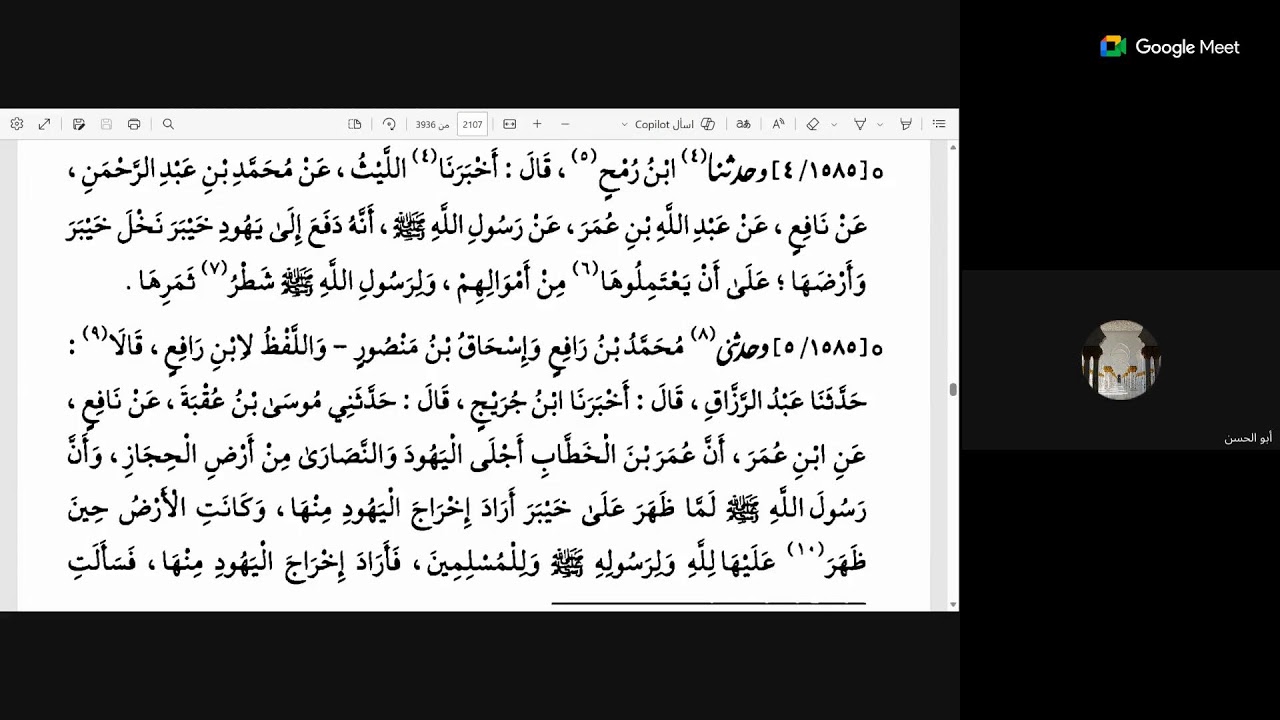 Google Meet
اسأل Copilot
2107
من 3936
○ [٤/١٥٨٥] وحدثنا(٤) ابْنُ رُمْحٍ(٥)، قَالَ : أَخْبَرَنَا(٤) اللَّيْثُ، عَنْ مُحَمَّدِ بْنِ عَبْدِ الرَّحْمَنِ،
عَنْ نَافِعٍ، عَنْ عَبْدِ اللَّهِ بْنِ عُمَرَ، عَنْ رَسُولِ اللَّهِ ﷺ، أَنَّهُ دَفَعَ إِلَىٰ يَهُودِ خَيْبَرَ نَخْلَ خَيْبَرَ
وَأَرْضَهَا ؛ عَلَىٰ أَنْ يَعْتَمِلُوهَا(٦) مِنْ أَمْوَالِهِمْ، وَلِرَسُولِ اللَّهِ ﷺ شَطْرُ(٧) ثَمَرِهَا .
○ [٥/١٥٨٥] وحدثني(٨) مُحَمَّدُ بْنُ رَافِعٍ وَإِسْحَاقُ بْنُ مَنْصُورٍ - وَاللَّفْظُ لِابْنِ رَافِعٍ، قَالَا(٩) :
حَدَّثَنَا عَبْدُ الرَّزَّاقِ، قَالَ : أَخْبَرَنَا ابْنُ جُرَيْجٍ، قَالَ : حَدَّثَنِي مُوسَىٰ بْنُ عُقْبَةَ، عَنْ نَافِعٍ،
عَنِ ابْنِ عُمَرَ، أَنَّ عُمَرَ بْنَ الْخَطَّابِ أَجْلَى الْيَهُودَ وَالنَّصَارَىٰ مِنْ أَرْضِ الْحِجَازِ، وَأَنَّ
رَسُولَ اللَّهِ ﷺ لَمَّا ظَهَرَ عَلَىٰ خَيْبَرَ أَرَادَ إِخْرَاجَ الْيَهُودِ مِنْهَا، وَكَانَتِ الْأَرْضُ حِينَ
ظَهَرَ(١٠) عَلَيْهَا لِلَّهِ وَلِرَسُولِهِ ﷺ وَلِلْمُسْلِمِينَ، فَأَرَادَ إِخْرَاجَ الْيَهُودِ مِنْهَا، فَسَأَلَتِ
أبو الحسن